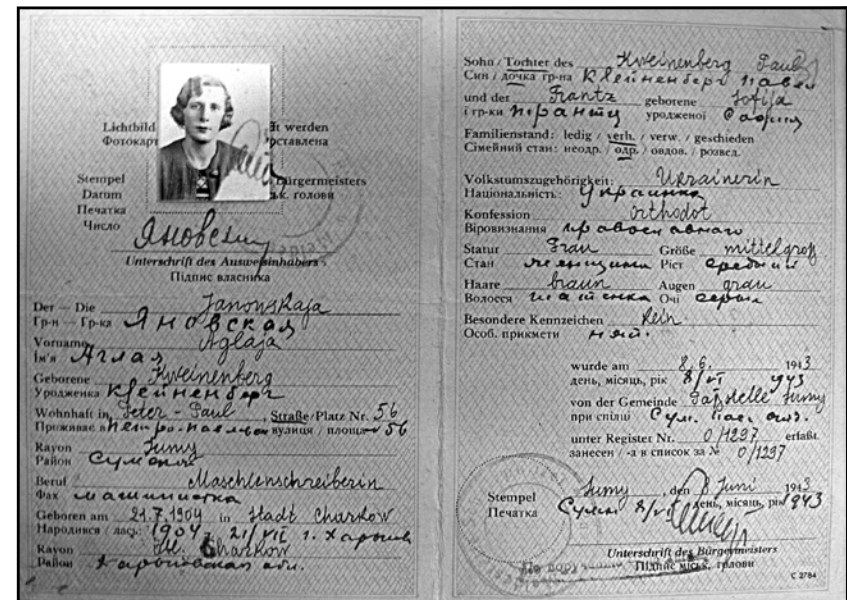 Lichtbild werden
Фотокарт рставлена
Stempel Bürgermeisters
Datum ськ. голови
Печатка
Число
Unterschrift des Ausweisinhabers
Підпис власника
Der — Die Janowskaja
Гр-н — Гр-ка Яновская
Vorname Aglaja
Ім'я Аглая
Geborene Kweinenberg
Уродженка Клейненберг
Wohnhaft in Peter - Paul Straße/Platz Nr. 56
Проживає в вулиця / площа 56
Rayon Sumy
Район
Beruf Maschlenschreiberin
Фах машинистка
Geboren am 21.7.1904 in Stadt Charkow
Народився / лась: 1904 21/VII г. Харьков
Rayon Charkow
Район Харьковская обл.
Sohn / Tochter des Kweinenberg Paul
Син / дочка гр-на Клейненберг
und der Frantz geborene Sofija
і гр-ки уродженої
Familienstand: ledig / verh. / verw. / geschieden
Сімейний стан: неодр. / одр. / овдов. / розвел.
Volkstumszugehörigkeit: Ukrainerin
Національність: Украинка
Konfession orthodot
Віровизнання
Statur Frau Größe mittelgroß
Стан женщина Ріст средний
Haare braun Augen grau
Волосся шатенка Очі серые
Besondere Kennzeichen Kein
Особ. прикмети
wurde am 8.6. 1943
день, місяць, рік 8/VI 943
von der Gemeinde Paßstelle Sumy
при спілці
unter Register Nr. 0/1237 erfaßt
занесен / -а в список за № 0/1237
Stempel Sumy, den 8 Juni 1943
Печатка Сумы 8/VI день, місяць, рік 1943
Unterschrift des Bürgermeisters
Підпис міськ. голови
C 2784